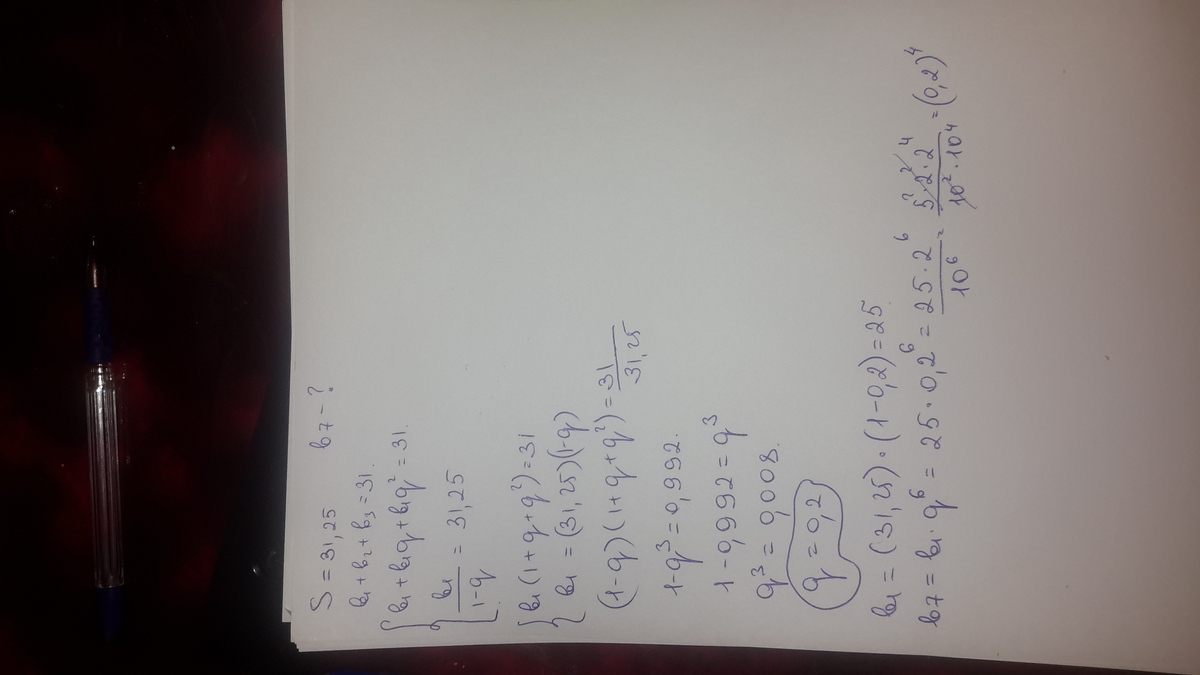 S = 31,25 b7 - ?
b1 + b2 + b3 = 31.
{ b1 + b1q + b1q² = 31.
b1/(1-q) = 31,25
{ b1(1+q+q²) = 31
b1 = (31,25)(1-q)
(1-q)(1+q+q²) = 31/31,25
1-q³ = 0,992.
1-0,992 = q³
q³ = 0,008.
q = 0,2
b1 = (31,25)·(1-0,2) = 25.
b7 = b1·q⁶ = 25·0,2⁶ = 25·2⁶/10⁶ = 5²·2²·2⁴/10²·10⁴ = (0,2)⁴